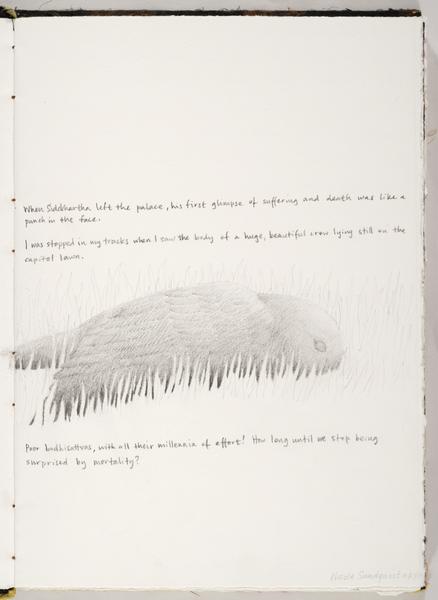 When Siddhartha left the palace, his first glimpse of suffering and death was like a
punch in the face.
I was stopped in my tracks when I saw the body of a huge, beautiful crow lying still on the
capitol lawn.
Poor bodhisattvas, with all their millennia of effort! How long until we stop being
surprised by mortality?